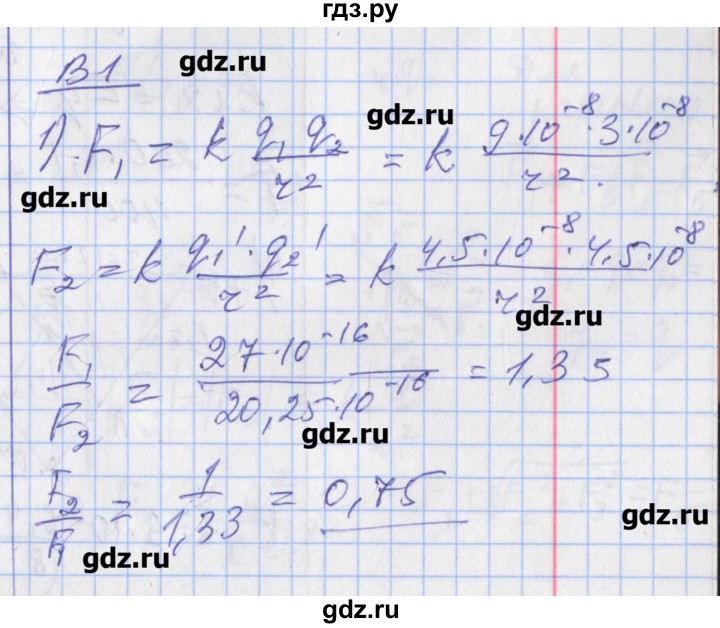 гдз.ру
В1
gdz.ru
1). F₁ = k q₁ q₂ / r² = k 9·10⁻⁸·3·10⁻⁸ / r².
gdz.ru
gdz.ru
F₂ = k q₁'·q₂' / r² = k 4,5·10⁻⁸·4,5·10⁻⁸ / r²
gdz.ru
F₁ / F₂ = 27·10⁻¹⁶ / 20,25·10⁻¹⁶ = 1,35
gdz.ru
F₂ / F₁ = 1 / 1,33 = 0,75
gdz.ru
gdz.ru
gdz.ru